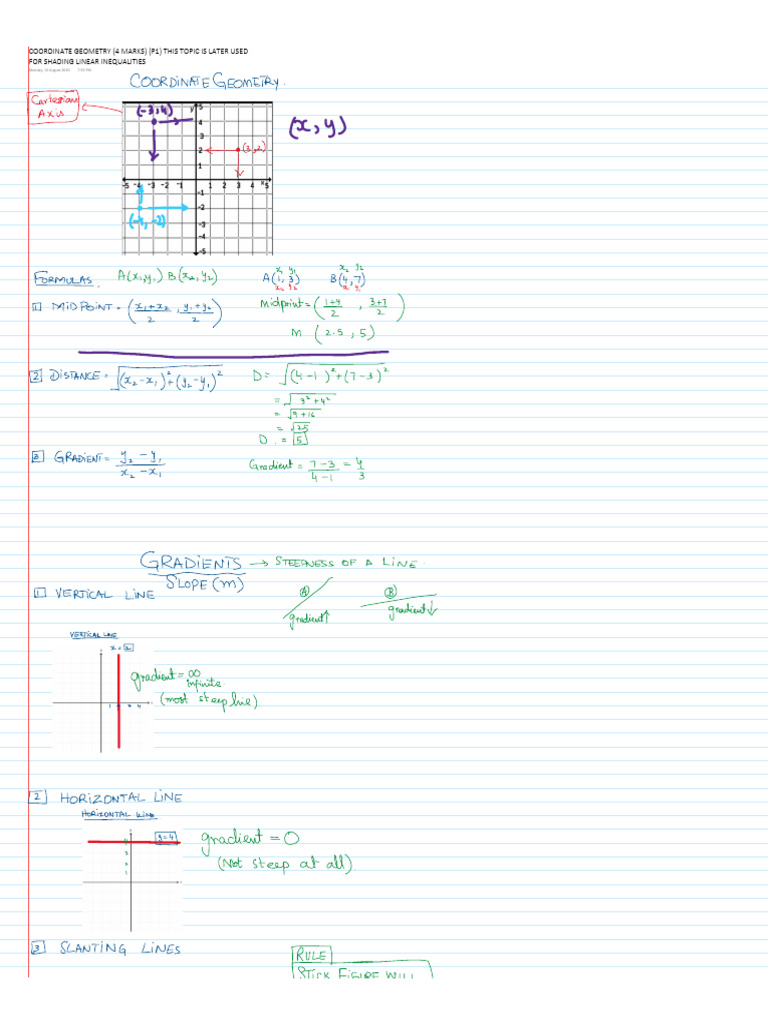 COORDINATE GEOMETRY (4 MARKS) (P1) THIS TOPIC IS LATER USED
FOR SHADING LINEAR INEQUALITIES
COORDINATE GEOMETRY.
Cartesian
Axis
(-3,4)
(x,y)
(3,2)
(-4,-2)
y
5
4
3
2
1
-5 -4 -3 -2 -1 1 2 3 4 x 5
-1
-2
-3
-4
-5
FORMULAS. A(x₁,y₁) B(x₂,y₂)
x₁ y₁ x₂ y₂
A(1,3) B(4,7)
x₂ y₂ x₁ y₁
1 MIDPOINT = (x₁+x₂/2 , y₁+y₂/2)
Midpoint = (1+4/2 , 3+7/2)
M (2.5, 5)
2 DISTANCE = √(x₂-x₁)²+(y₂-y₁)²
D = √(4-1)²+(7-3)²
= √3²+4²
= √9+16
= √25
D = 5
3 GRADIENT = y₂-y₁/x₂-x₁
Gradient = 7-3/4-1 = 4/3
GRADIENTS → STEEPNESS OF A LINE.
SLOPE (m)
1 VERTICAL LINE
A
gradient↑
B
gradient↓
VERTICAL LINE
x = 2
gradient = ∞
infinite
(most steep line)
2 HORIZONTAL LINE
HORIZONTAL LINE
y=4
gradient = 0
(Not steep at all).
3 SLANTING LINES
RULE
STICK FIGURE WILL